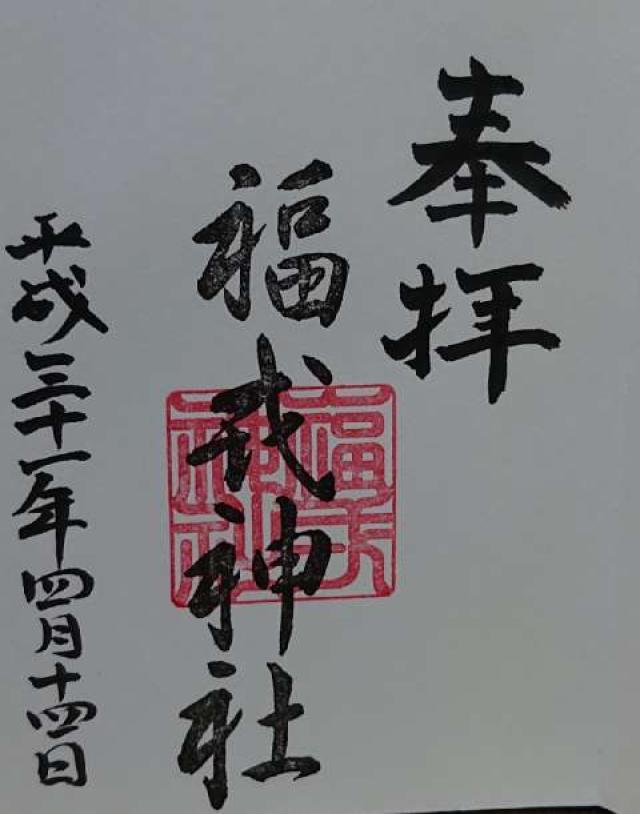 奉拝
福戎神社
平成三十一年四月十四日
福戎神社